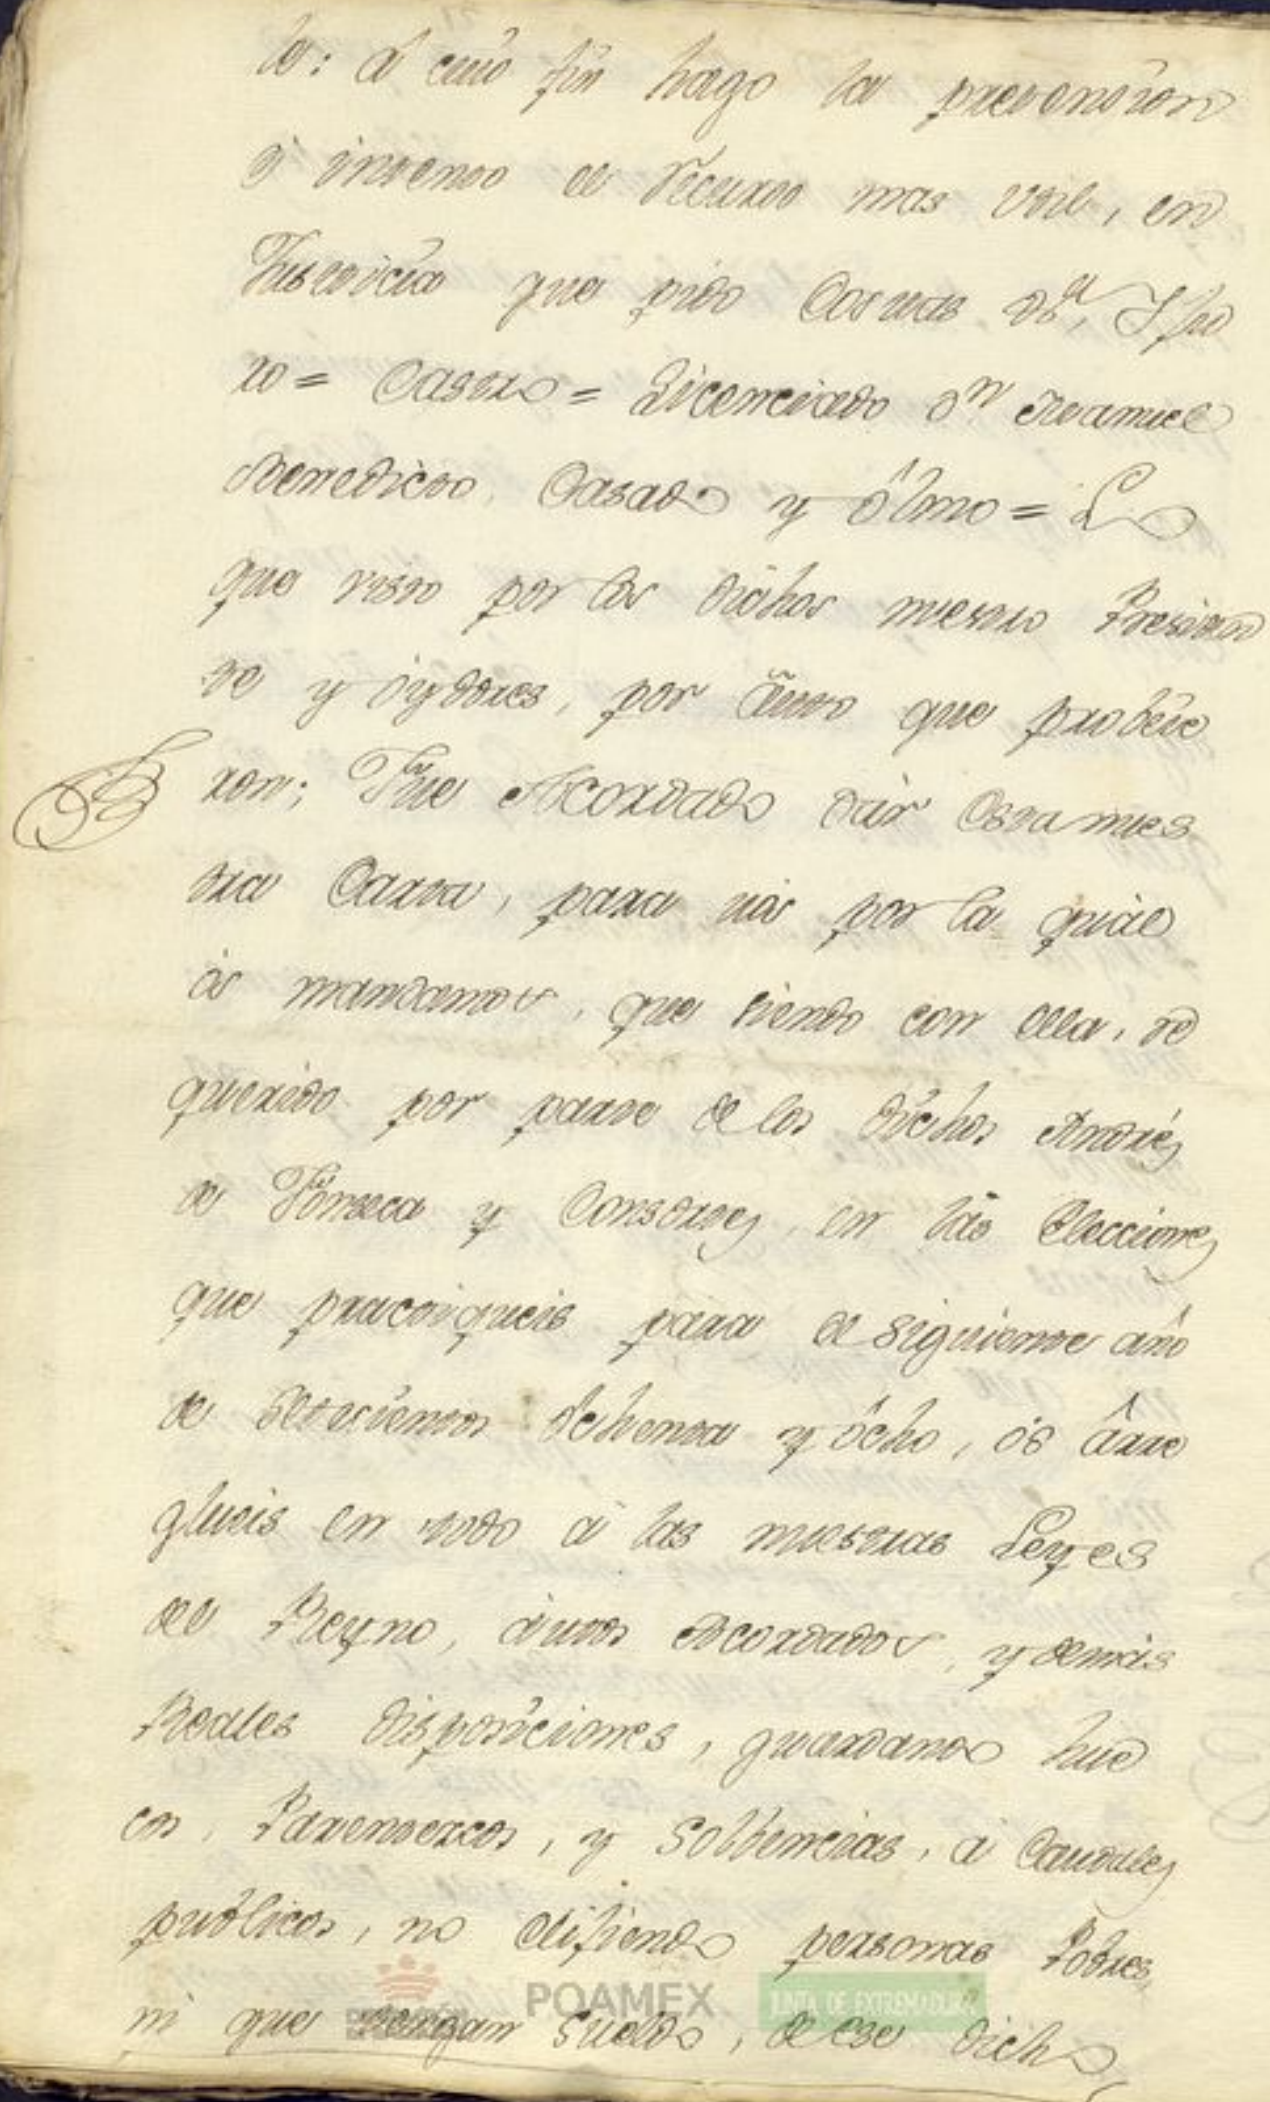 lo: á cuio fin hago la prevension
é intento el Recurso mas util, en
Justicia que pido Costas &ª, Ysido
ro = Castro = Licenciado Dn Manuel
Benedicto Casado y ólmo = Lo
que visto por los dichos nuestro Presiden
te y óydores, por áuto que probeie
ron; Fue Acordado dár Esta nues
tra Carta, para vós por la quál
ós mandamos, que siendo con ella, re
querido por parte de los dichos Andrés
de Fonseca y Consortes, en las Elecciones
que practiqueis para el siguiente año
de setecientos óchenta y ócho, ós árre
gleis en todo á las nuestras Leyes
del Reyno, áutos Acordados, y demás
Reales disposiciones, guardando hue
cos, Parentescos, y Solbencias, á Caudales
públicos, no elifiendo personas Pobres,
ni que tengan Sueldo, de ese dicho
POAMEX
JUNTA DE EXTREMADURA